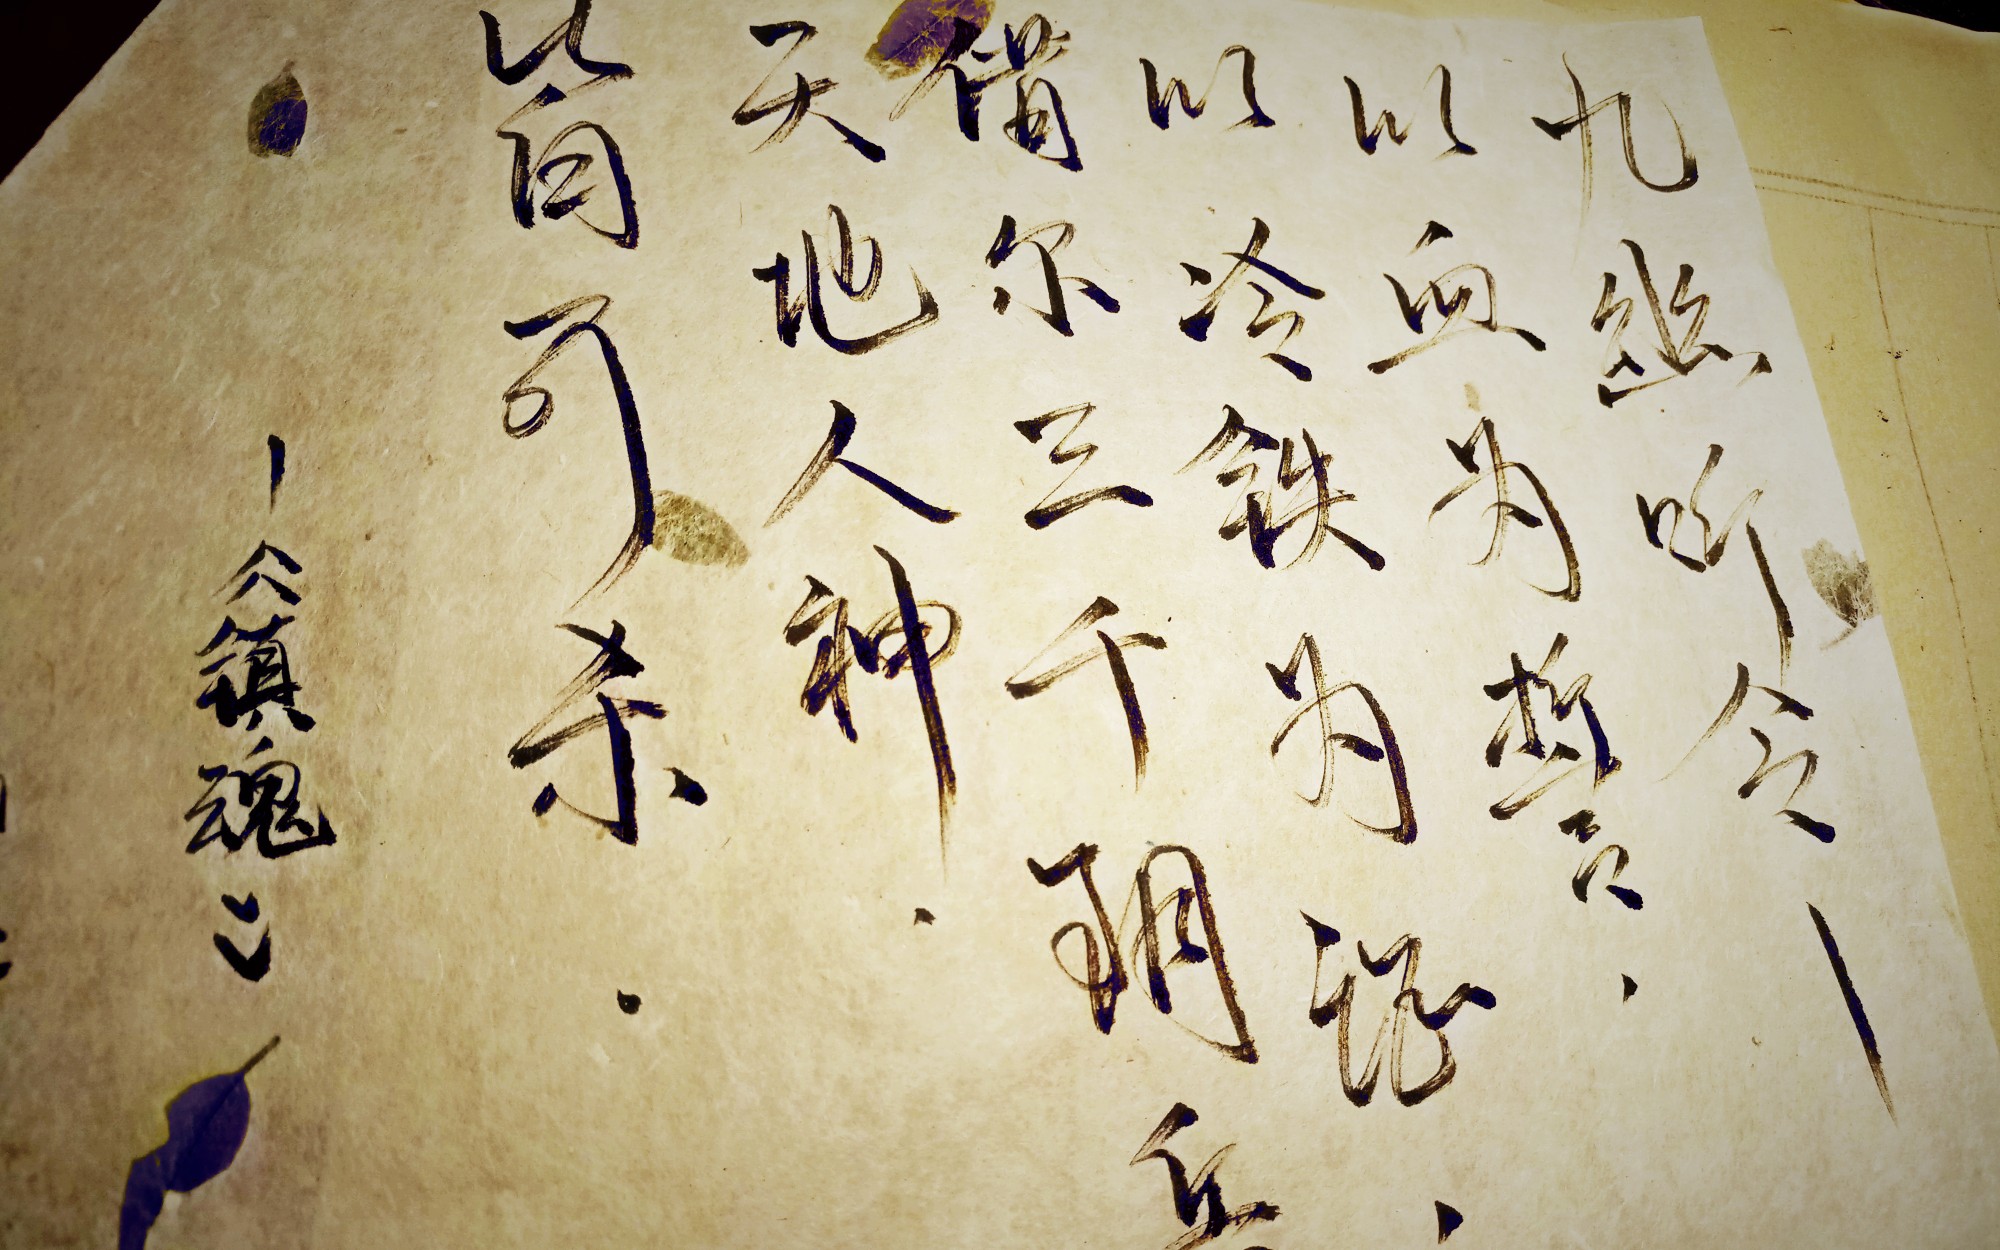 九幽听令—
以血为誓.
以冷铁为证.
借尔三千阴兵
天地人神.
皆可杀.
—《镇魂》